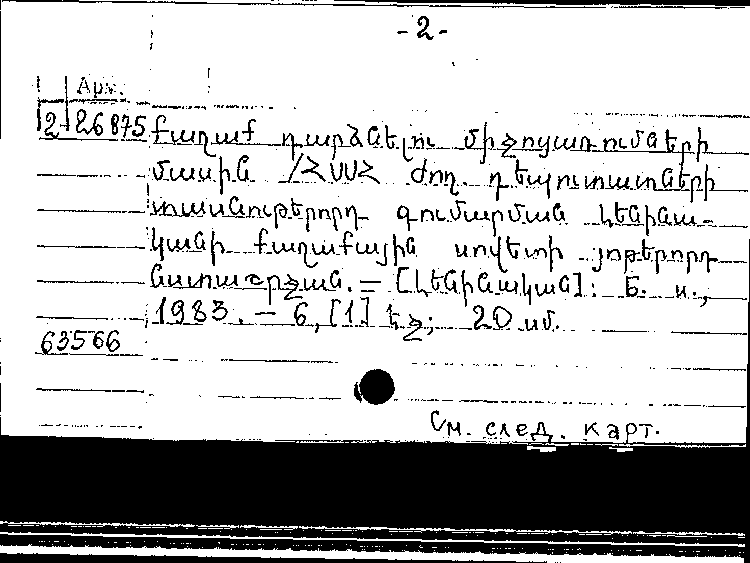 - 2 -
Арм.
2-26875 քաղաք դարձնելու միջոցառումների
մասին /ՀՍՍՀ ժող. դեպուտատների
տասնութերորդ գումարման Լենինա-
կանի քաղաքային սովետի յոթերորդ
նստաշրջան. — [Լենինական]: Б. и.,
1983. — 6, [1] էջ; 20 սմ.
63566
См. след. карт.